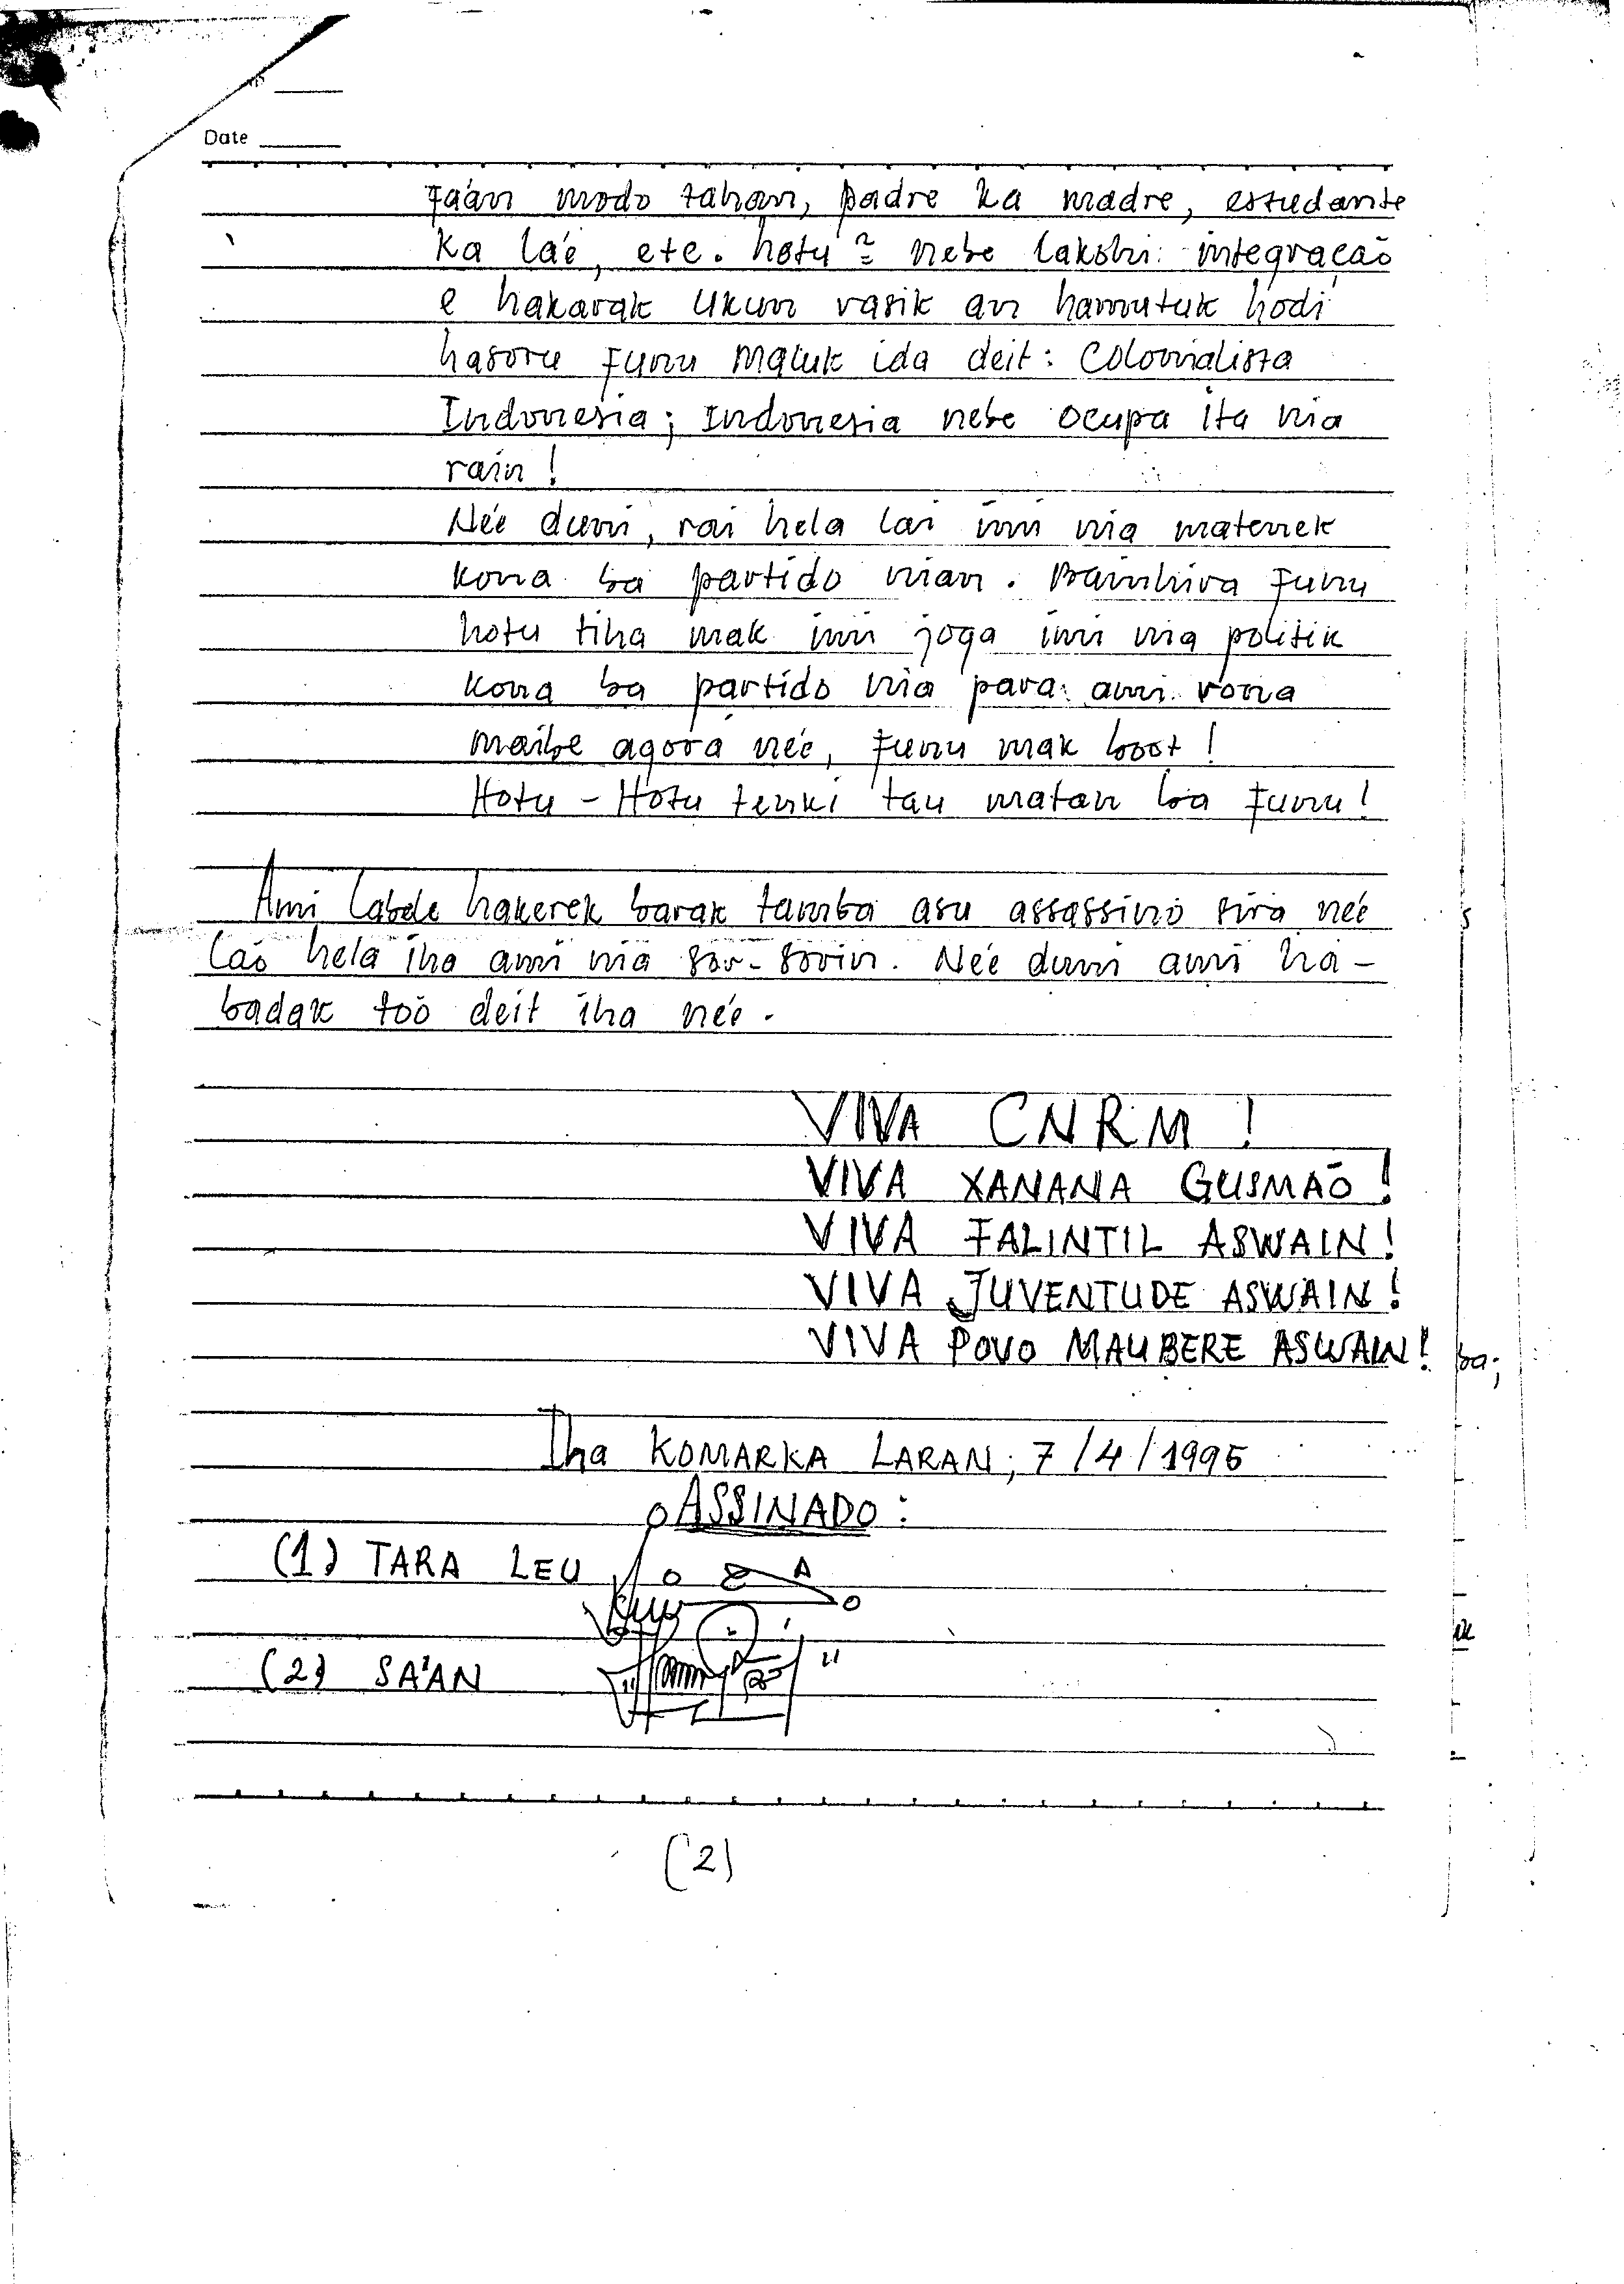 Date
Fáán modo tahan, padre ka madre, estudante
ka láé, etc. hotu² nebe lakohi integração
e hakarak ukun rasik an hamutuk hodi
hasoru funu maluk ida deit: Colonialista
Indonesia; Indonesia nebe ocupa ita nia
rain!
Née duni, rai hela lai imi nia matenek
kona ba partido nian. Bainhira funu
hotu tiha mak imi joga imi nia politik
kona ba partido nia para ami rona
maibe agora née, funu mak boot!
Hotu-Hotu tenki tau matan ba funu!
Ami labele hakerek barak tamba asu assassino sira née
láo hela iha ami nia sor-sorin. Née duni ami ha-
badak tóo deit iha née.
VIVA CNRM!
VIVA XANANA GUSMÃO!
VIVA FALINTIL ASWAIN!
VIVA JUVENTUDE ASWAIN!
VIVA POVO MAUBERE ASWAIN!
ba;
Iha KOMARKA LARAN, 7/4/1995
ASSINADO:
(1) TARA LEU
(2) SA'AN
(2)